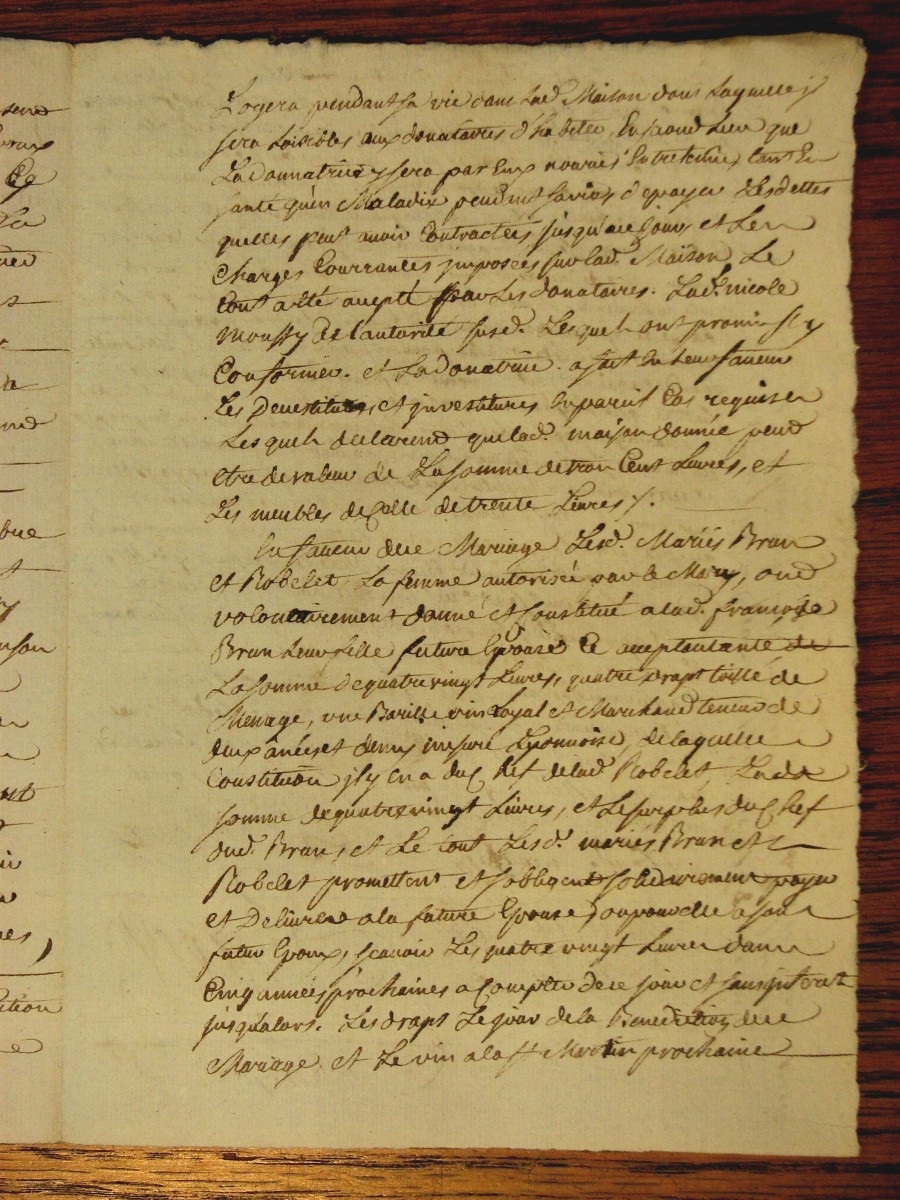 Logera pendant sa vie dans Lad. Maison dans Laquelle j
sera Loisibles aux donataires d'habiter, En second Lieu que
La donnatrice y sera par Eux nourrie Entretenue, tant En
santé qu'en Maladie pendant sa vie, d'epayer Les dettes
quelles peut avoir Contractées jusqu'a ce jour, et Les
Charges Courrantes jmposées sur lad. Maison Le
tout a été accepté par Les donataires. Lad. nicole
Moussy de L'autorité susd. Lesquels ont promis s'y
Conformer. et La donatrice a fait En Leur faveur
Les Devestitures, et jnvestitures En pareil Cas requises
Lesquels declarent que lad. maison donnée peut
Etre de valeur de La somme de trois Cent Livres, et
Les meubles de Celle de trente Livres /.
En faveur de ce Mariage Lesd. Mariés Brun
et Robelet La femme autorisée par le Mary, ont
volontairement donné et Constitué a lad. françoise
Brun Leur fille future Epouse Ce acceptantante de
La somme de quatre vingt Livres, quatre draps toille de
Menage, une Barille vin Loyal et Marchand teneur de
deux ânées et demy mesure Lyonnoise, de laquelle
Constitution jl y en a du Chef de lad. Robelet, Lad.
somme de quatre vingt Livres, et Le surplus du Chef
dud. Brun, et Le tout Lesd. mariés Brun et
Robelet promettent et s'obligent solidairement payer
et Delivrer a la future Epouse, ou pour elle a son
futur Epoux, scavoir Les quatre vingt Livres dans
Cinq années prochaines a Compter de ce jour et sans jnterest
jusqu'alors. Les draps Le jour de la Benediction de ce
Mariage, et Le vin a la St Martin prochaine